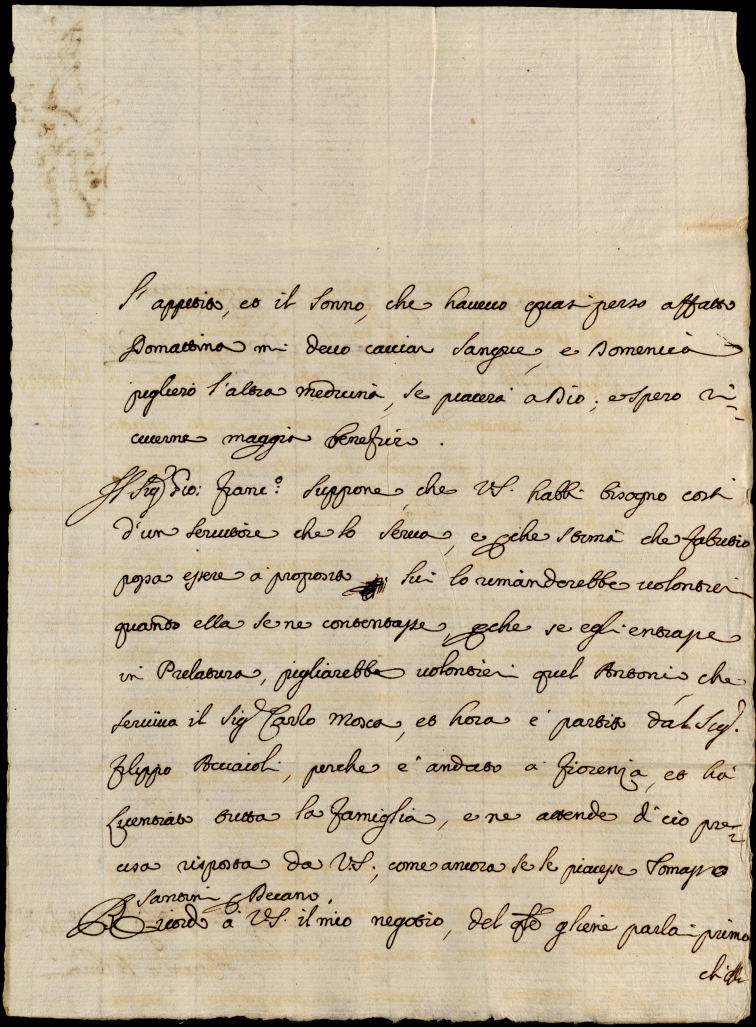 l'appetito, et il sonno, che havevo quasi perso affatto
Domattina mi devo cacciar sangue, e Domenica
pigliero l'altra medicina, se piacera a Dio; e spero ri=
ceverne maggior benefizio.
Il Sig.r Gio: Franc.o suppone, che V.S. habbi bisogno costi
d'un servitore che lo serva, e perche stima che Fabritio
possa essere a proposito lui lo rimanderebbe volontieri
quando ella se ne contentasse, perche se egli entrasse
in Prelatura, pigliarebbe volontieri quel Antonio, che
serviva il Sig.r Carlo Mosca, et hora e' partito dal Sig.r
Filippo Acciaioli, perche e' andato a Fiorenza, et ha
licentiato tutta la famiglia, e ne attende di cio pre=
cisa risposta da V.S.; come ancora se le piacesse Tomasso
Santini per Decano.
Ricordo a V.S. il mio negotio, del q.le gliene parlai primo
che